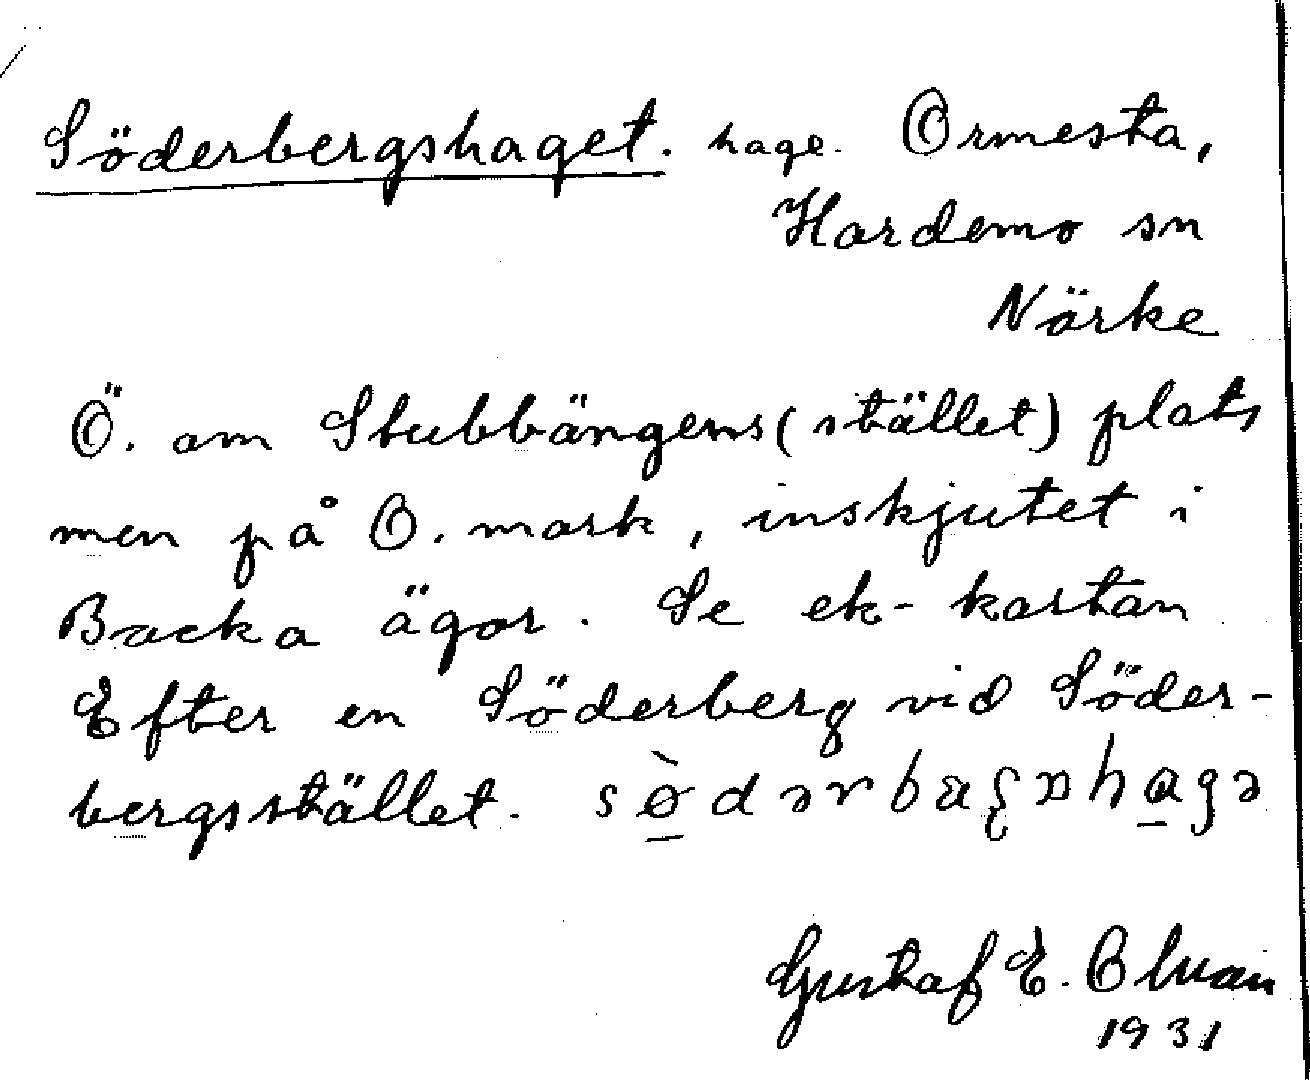 Söderbergshaget. hage. Ormesta,
Hardemo sn
Närke
Ö. om Stubbängens (stället) plats
men på O. mark, inskjutet i
Backa ägor. Se ek-kartan
Efter en Söderberg vid Söder-
bergsstället.
Gustaf E.
1931